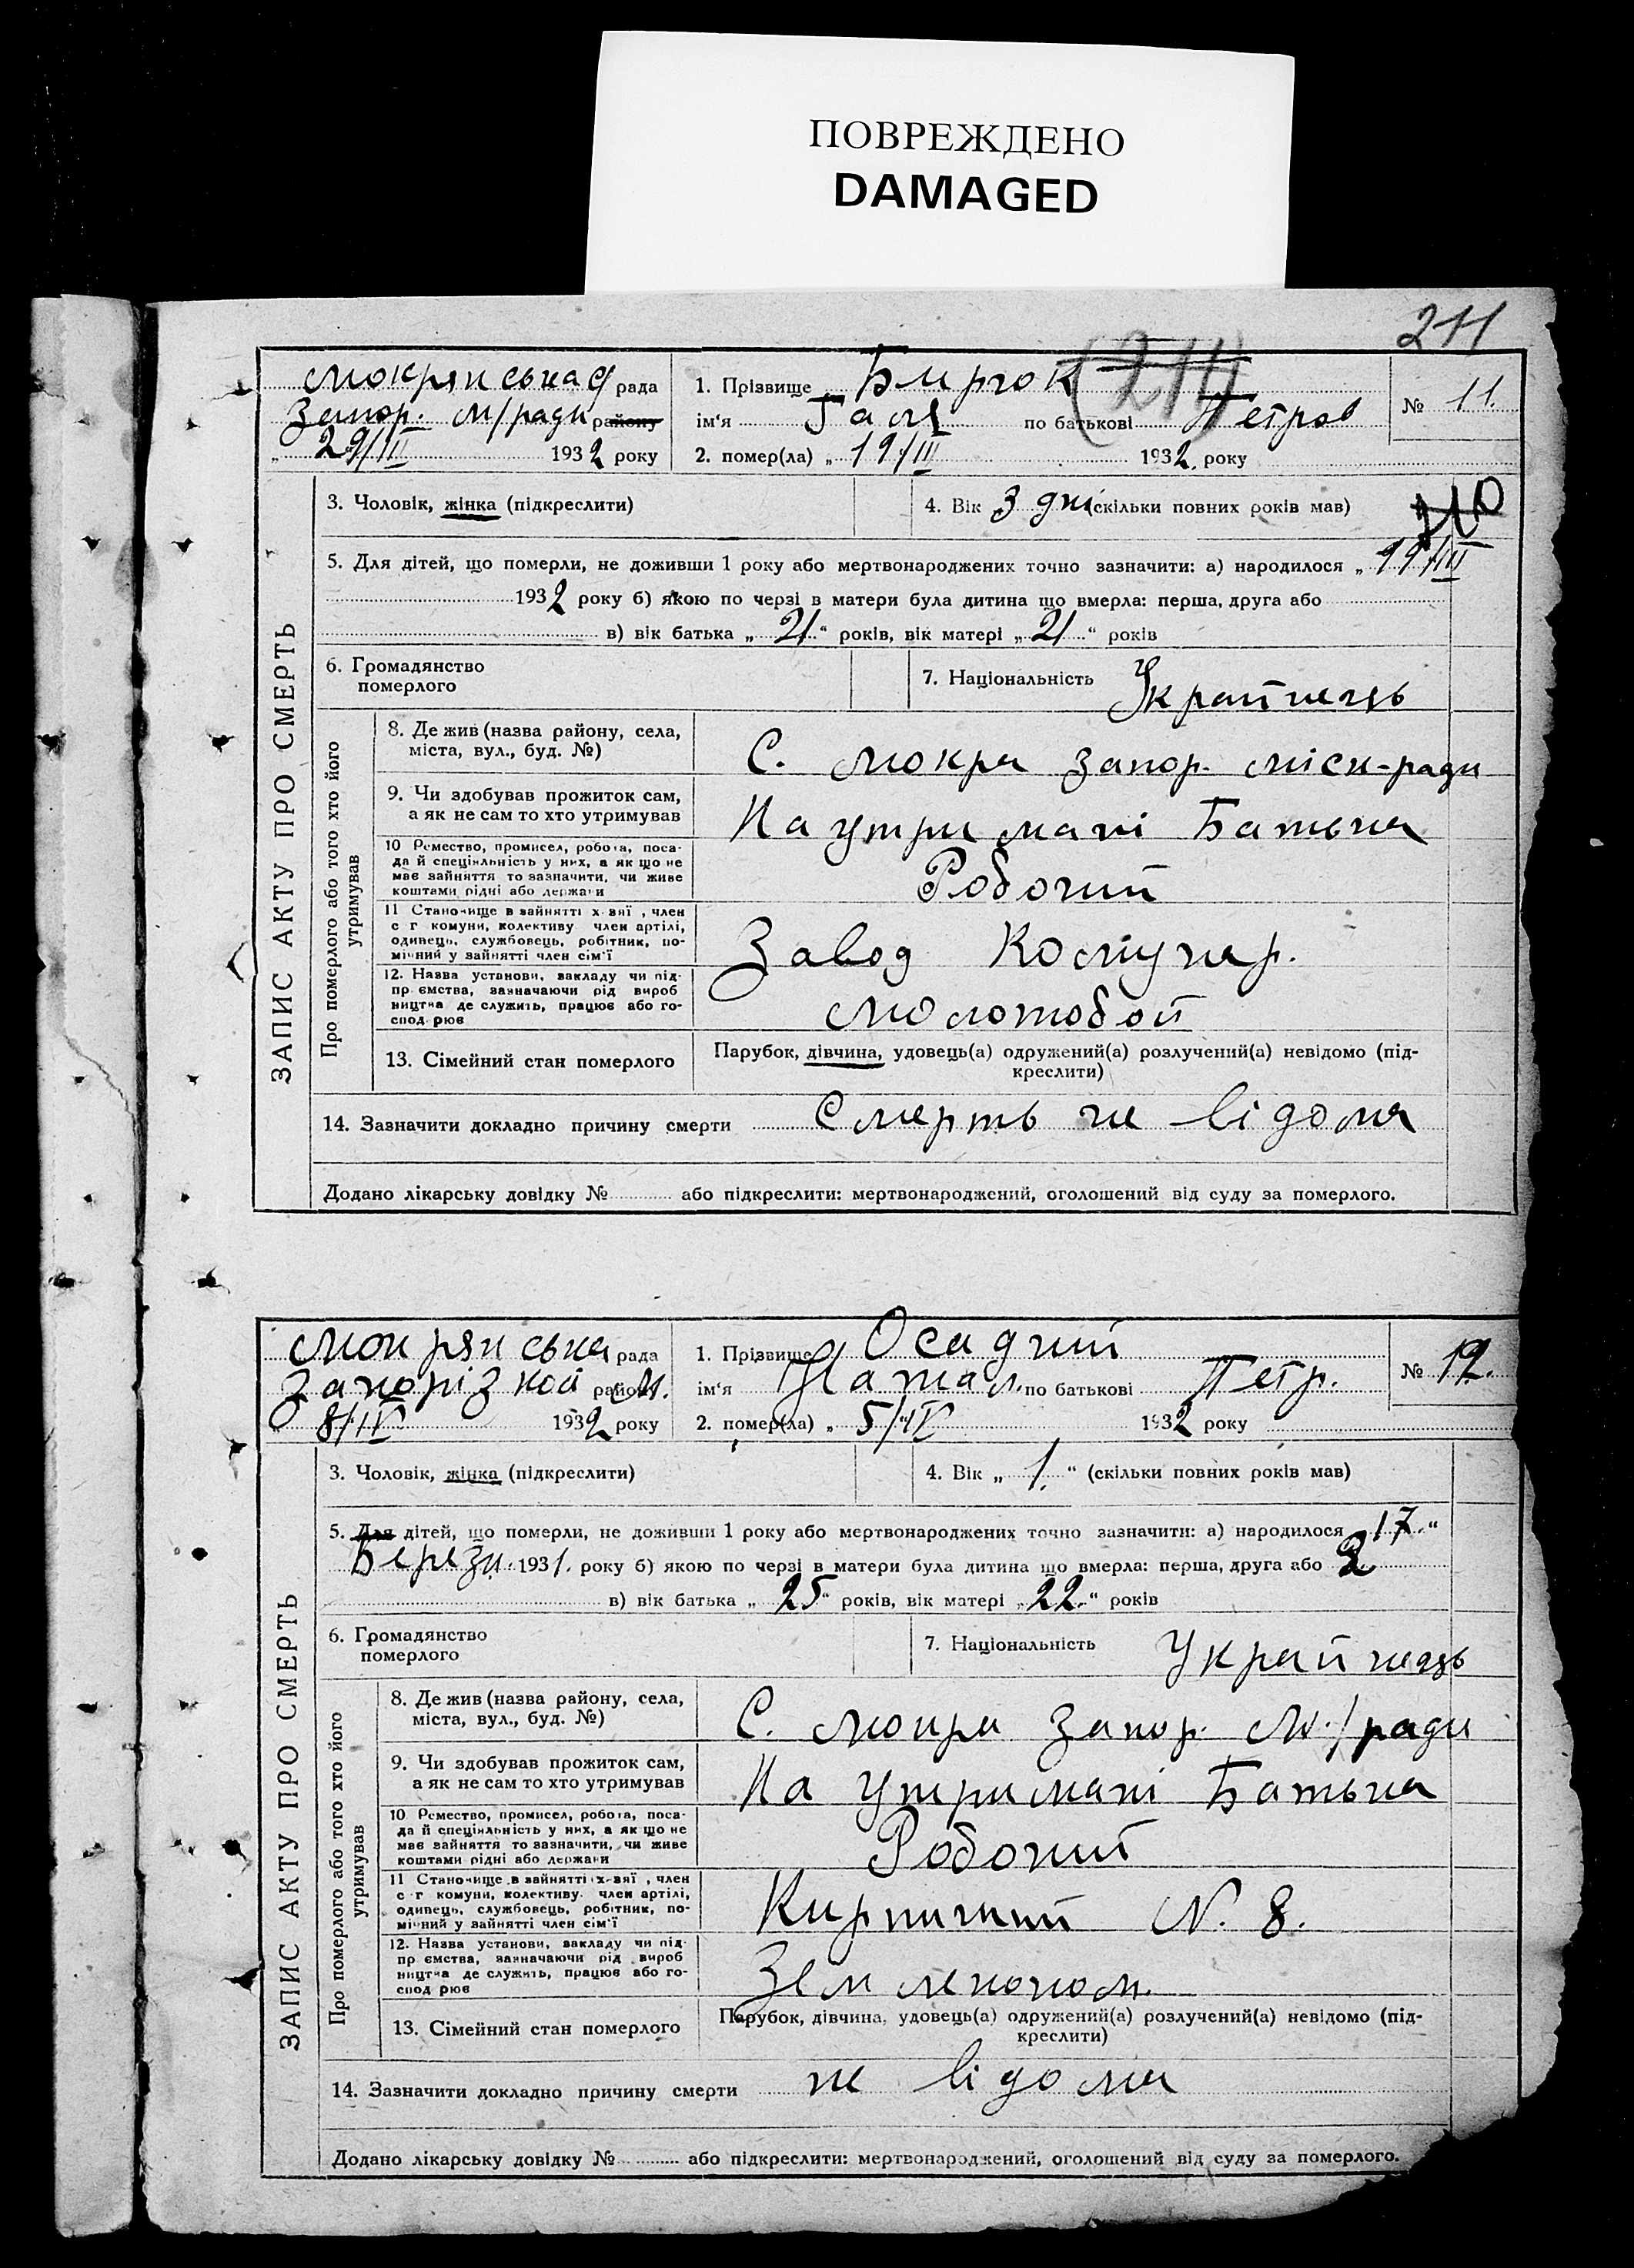 ПОВРЕЖДЕНО
DAMAGED
211
(211)
ЗАПИС АКТУ ПРО СМЕРТЬ
Мокрянська рада
Запор. м/ради району
„ 29/III 1932 року
1. Прізвище Бирюк
ім‘я Галя по батькові Петров
2. помер(ла) „ 19/III 1932 року
№ 11.
3. Чоловік, жінка (підкреслити)
4. Вік 3 дні (скільки повних років мав)
5. Для дітей, що померли, не доживши 1 року або мертвонароджених точно зазначити: а) народилося „ 19/III
1932 року б) якою по черзі в матери була дитина що вмерла: перша, друга або
в) вік батька „ 21 “ років, вік матері „ 21 “ років
6. Громадянство
померлого
7. Національність Українець
Про померлого або того хто його
утримував
8. Де жив (назва району, села,
міста, вул., буд. №)
С. Мокра Запор. міськ-ради
9. Чи здобував прожиток сам,
а як не сам то хто утримував
На утримані Батька
10 Ремество, промисел, робота, поса-
да й спеціяльність у них, а як що не
має зайняття то зазначити, чи живе
коштами рідні або держави
Робочий
11 Становище в зайнятті х-вяї, член
с г комуни, колективу член артілі,
одинець, службовець, робітник, по-
мічний у зайнятті член сім‘ї
Завод Комунар.
12. Назва установи, закладу чи під-
пр ємства, зазначаючи рід вироб
ництва де служить, працює або го-
спод рює
Молотобой
13. Сімейний стан померлого
Парубок, дівчина, удовець(а) одружений(а) розлучений(а) невідомо (під-
креслити)
14. Зазначити докладно причину смерти Смерть не відома
Додано лікарську довідку № або підкреслити: мертвонароджений, оголошений від суду за померлого.
ЗАПИС АКТУ ПРО СМЕРТЬ
Мокрянська рада
Запорізкой району м.
8/IV 1932 року
1. Прізвище Осадчий
ім‘я Натал. по батькові Петр.
2. помер(ла) „ 5/IV 1932 року
№ 12.
3. Чоловік, жінка (підкреслити)
4. Вік „ 1. “ (скільки повних років мав)
5. Для дітей, що померли, не доживши 1 року або мертвонароджених точно зазначити: а) народилося 17 “
Березн. 1931. року б) якою по черзі в матери була дитина що вмерла: перша, друга або 2
в) вік батька „ 25 “ років, вік матері „ 22. “ років
6. Громадянство
померлого
7. Національність Українець
Про померлого або того хто його
утримував
8. Де жив (назва району, села,
міста, вул., буд. №)
С. Мокра Запор. М./ради
9. Чи здобував прожиток сам,
а як не сам то хто утримував
На утримані Батька
10 Ремество, промисел, робота, поса-
да й спеціяльність у них, а як що не
має зайняття то зазначити, чи живе
коштами рідні або держави
Робочий
11 Становище в зайнятті х-вяї, член
с г комуни, колективу член артілі,
одинець, службовець, робітник, по-
мічний у зайнятті член сім‘ї
Кирпичний N. 8.
12. Назва установи, закладу чи під-
пр ємства, зазначаючи рід вироб
ництва де служить, працює або го-
спод рює
Землекопом.
13. Сімейний стан померлого
Парубок, дівчина, удовець(а) одружений(а) розлучений(а) невідомо (під-
креслити)
14. Зазначити докладно причину смерти не відома
Додано лікарську довідку № або підкреслити: мертвонароджений, оголошений від суду за померлого.